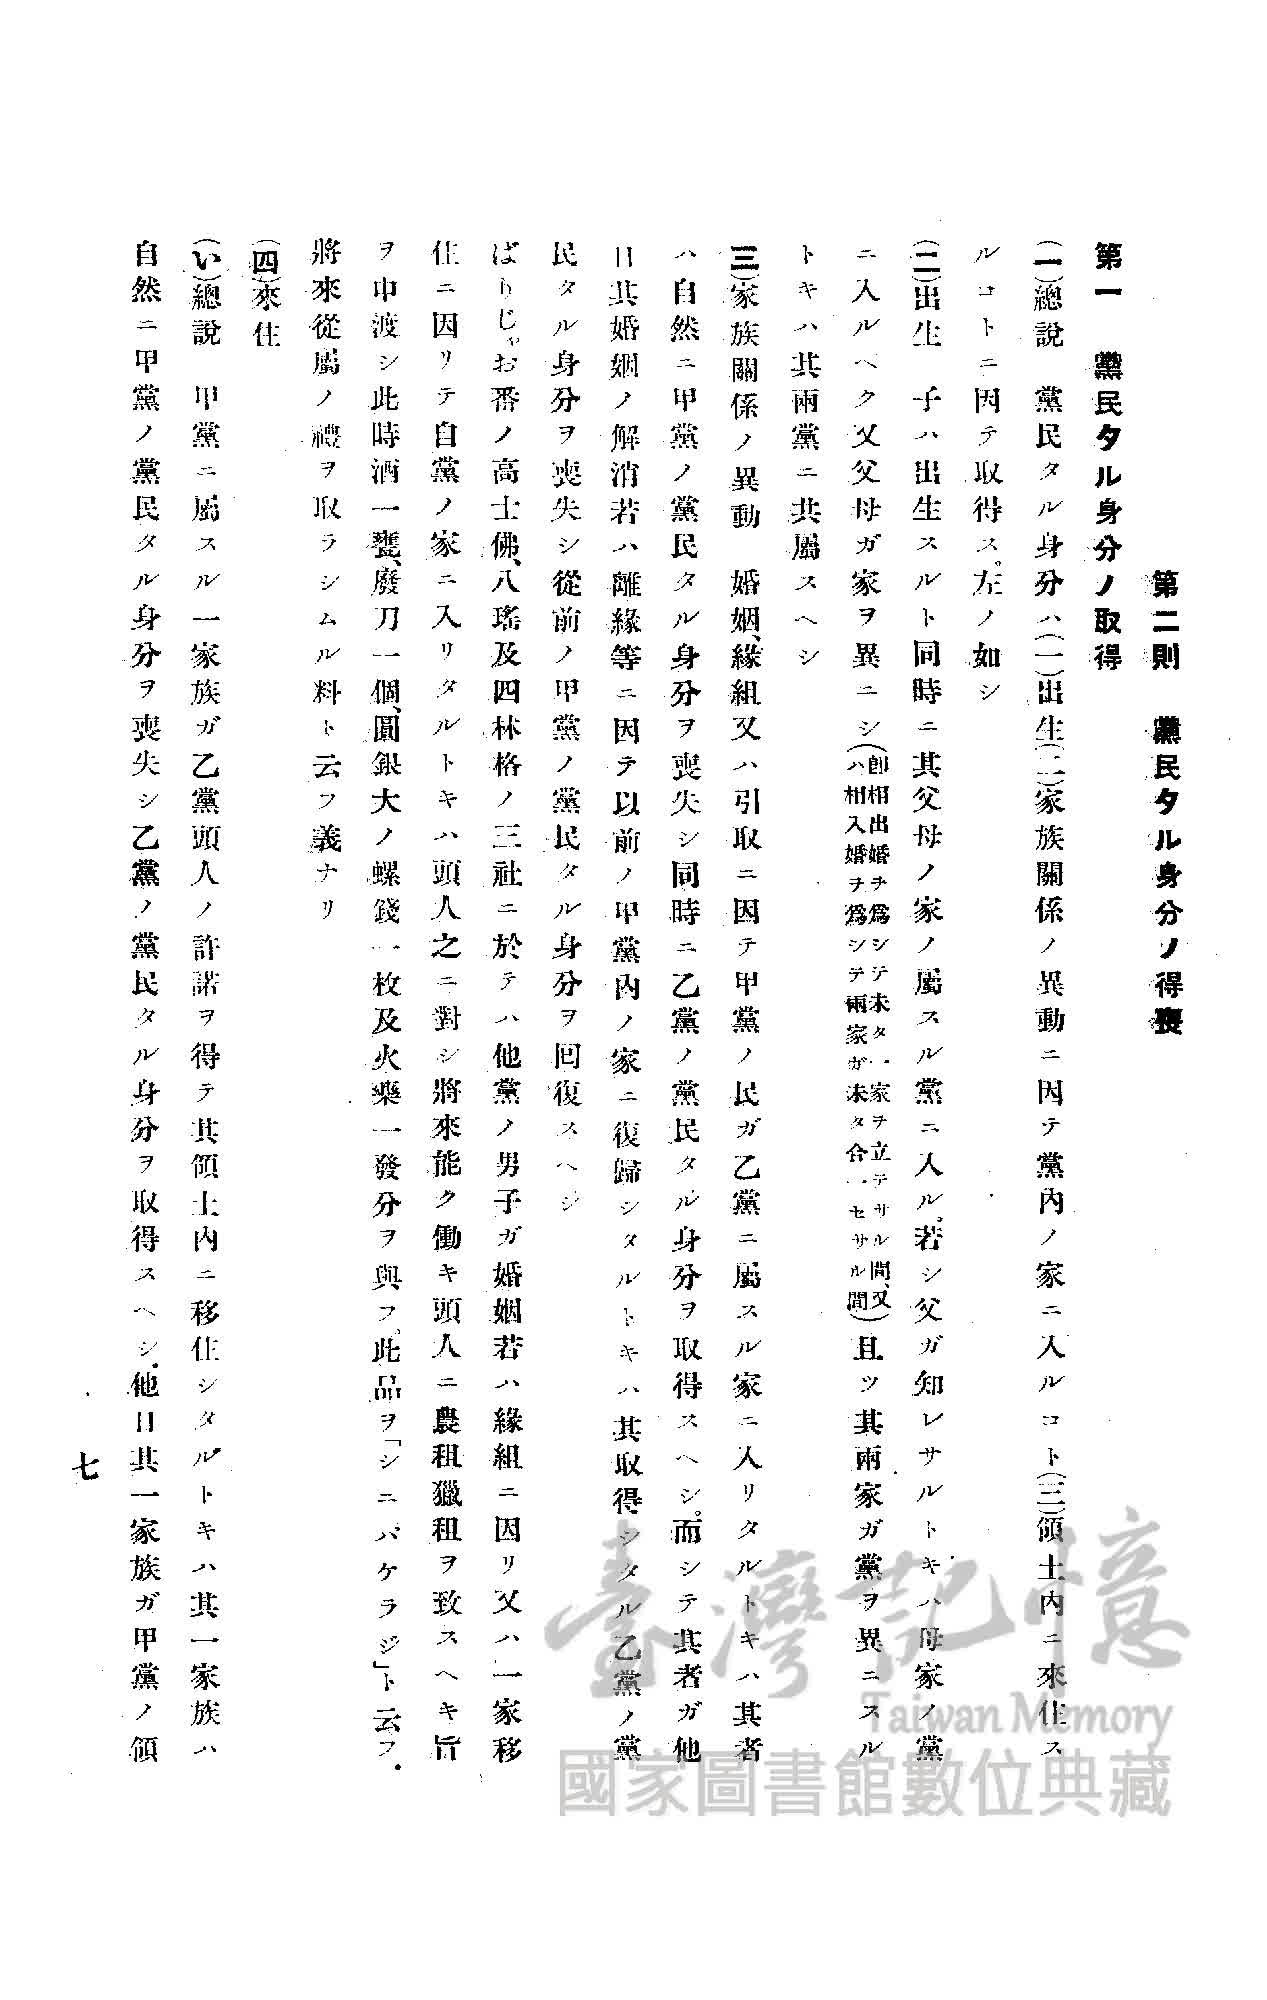 第二則　黨民タル身分ノ得喪
第一　黨民タル身分ノ取得
(一)總說　黨民タル身分ハ(一)出生(二)家族關係ノ異動ニ因テ黨內ノ家ニ入ルコト(三)領土內ニ來住ス
ルコトニ因テ取得ス。左ノ如シ
(二)出生　子ハ出生スルト同時ニ其父母ノ家ノ屬スル黨ニ入ル。若シ父ガ知レサルトキハ母家ノ黨
ニ入ルヘク父父母ガ家ヲ異ニシ(卽相出婚ヲ爲シテ未タ一家ヲ立テサル間、又ハ相入婚ヲ爲シテ兩家ガ未タ合一セサル間)且ツ其兩家ガ黨ヲ異ニスル
トキハ其兩黨ニ共屬スヘシ
三)家族關係ノ異動　婚姻、緣組又ハ引取ニ因テ甲黨ノ民ガ乙黨ニ屬スル家ニ入リタルトキハ其者
ハ自然ニ甲黨ノ黨民タル身分ヲ喪失シ同時ニ乙黨ノ黨民タル身分ヲ取得スヘシ。而シテ其者ガ他
日其婚姻ノ解消若ハ離緣等ニ因テ以前ノ甲黨內ノ家ニ復歸シタルトキハ其取得シタル乙黨ノ黨
民タル身分ヲ喪失シ從前ノ甲黨ノ黨民タル身分ヲ回復スヘシ
ばりじゃお番ノ高士佛、八瑤及四林格ノ三社ニ於テハ他黨ノ男子ガ婚姻若ハ緣組ニ因リ又ハ一家移
住ニ因リテ自黨ノ家ニ入リタルトキハ頭人之ニ對シ將來能ク働キ頭人ニ農租獵租ヲ致スヘキ旨
ヲ申渡シ此時酒一甕、廢刀一個、圓銀大ノ螺錢一枚及火藥一發分ヲ與フ。此品ヲ「シニパケラジ」ト云フ.
將來從屬ノ禮ヲ取ラシムル料ト云フ義ナリ
(四)來住
(い)總說　甲黨ニ屬スル一家族ガ乙黨頭人ノ許諾ヲ得テ其領土內ニ移住シタルトキハ其一家族ハ
自然ニ甲黨ノ黨民タル身分ヲ喪失シ乙黨ノ黨民タル身分ヲ取得スヘシ.他日其一家族ガ甲黨ノ領
七
臺灣記憶
Taiwan Memory
國家圖書館數位典藏